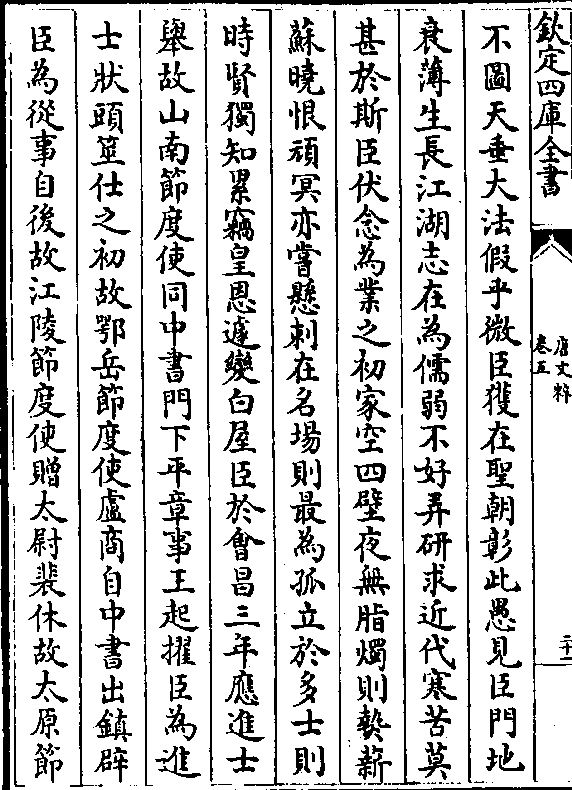 欽定四庫全書
唐文粹
卷五
二十一
不圖天垂大法假乎微臣獲在聖朝彰此愚見臣門地
衰薄生長江湖志在為儒弱不好弄研求近代寒苦莫
甚於斯臣伏念為業之初家空四壁夜無脂燭則爇薪
蘇曉恨頑冥亦嘗懸刺在名場則最為孤立於多士則
時賢獨知累竊皇恩遽變白屋臣於會昌三年應進士
舉故山南節度使同中書門下平章事王起擢臣為進
士狀頭筮仕之初故鄂岳節度使盧商自中書出鎮辟
臣為從事自後故江陵節度使贈太尉裴休故太原節